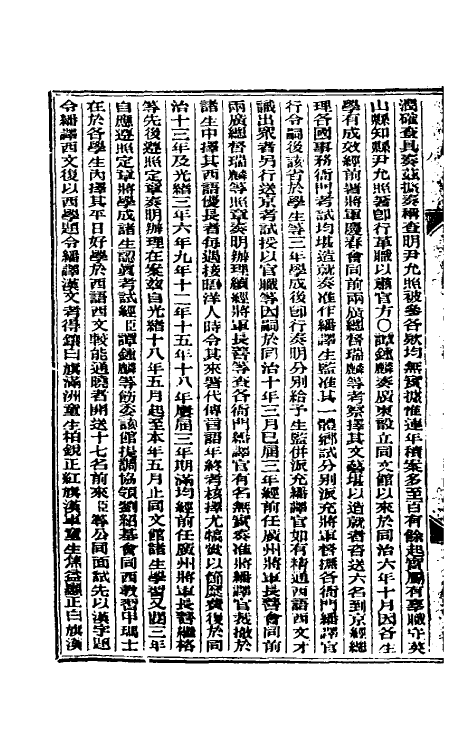 濮確查具奏茲據奏稱查明尹允照被參各款均無實據惟連年積案多至百有餘起實屬有辜職守英
山縣知縣尹允照著卽行革職以肅官方○譚鍾麟奏廣東設立同文館以來於同治六年十月因各生
學有成效經前署將軍慶春會同前兩廣總督瑞麟等考察擇其文藝堪以造就者咨送六名到京經總
理各國事務衙門考試均堪造就奏准作繙譯生監准其一體鄉試分別派充將軍督撫各衙門繙譯官
行令嗣後該省於學生等三年學成後卽行奏明分別給予生監併派充繙譯官如有精通西語西文才
識出眾者另行送京考試授以官職等因嗣於同治十年三月已屆三年經前任廣州將軍長善會同前
兩廣總督瑞麟等照章奏明辦理續經將軍長善等查各衙門繙譯官有名無實奏准將繙譯官裁撤於
諸生中擇其西語優長者每遇接晤洋人時令其來署代傳言語年終考核擇尤犒賞以節糜費復於同
治十三年及光緒三年六年九年十二年十五年十八年歷屆三年期滿均經前任廣州將軍長善繼格
等先後遵照定章奏明辦理在案茲自光緒十八年五月起至本年五月止同文館諸生學習又屆三年
自應遵照定章將學成諸生認眞考試經臣譚鍾麟等飭委該館提調協領劉紹基會同西教習中瑪士
在於各學生內擇其平日好學於西語西文較能通曉者開送十七名前來臣等公同面試先以漢字題
令繙譯西文復以西學題令繙譯漢文考得鑲白旗滿洲童生柏銳正紅旗漢軍童生焦益謙正白旗漢